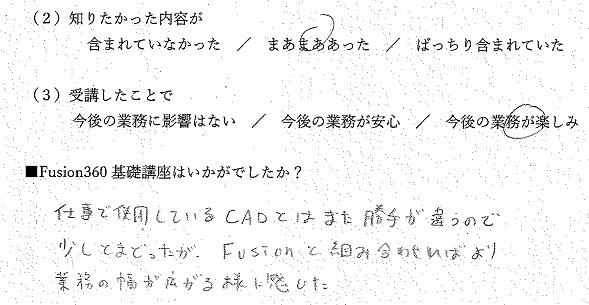 （2）知りたかった内容が
含まれていなかった ／ まあまああった ／ ばっちり含まれていた
（3）受講したことで
今後の業務に影響はない ／ 今後の業務が安心 ／ 今後の業務が楽しみ
■Fusion360 基礎講座はいかがでしたか？
仕事で使用しているCADとはまた勝手が違うので
少しとまどったが、Fusionと組み合わせればより
業務の幅が広がる様に感じた